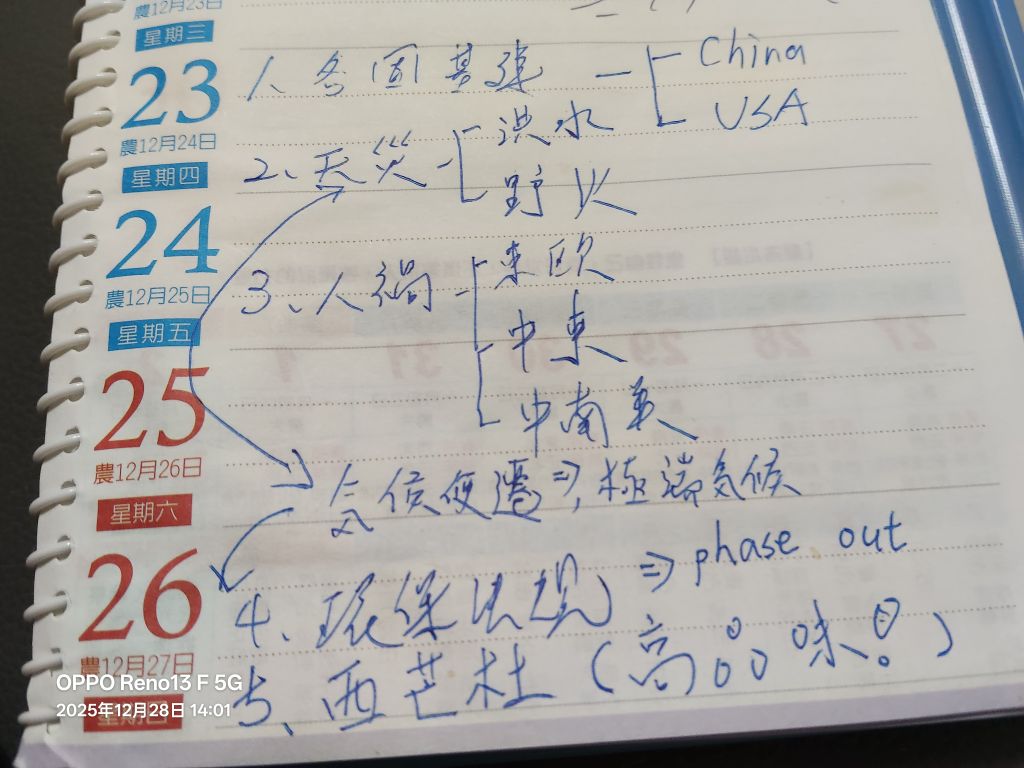 農12月23日
星期三
23
農12月24日
星期四
24
農12月25日
星期五
25
農12月26日
星期六
26
農12月27日
1、各国基建 — China
USA
2、天災 洪水
野火
3、人禍 東欧
中東
中南美
气候变遷 ⇒ 極端気候
4、环保法規 ⇒ phase out
5、西芒杜 (高品味!)
27
28
29
30
31
1
OPPO Reno13 F 5G
2025年12月28日 14:01